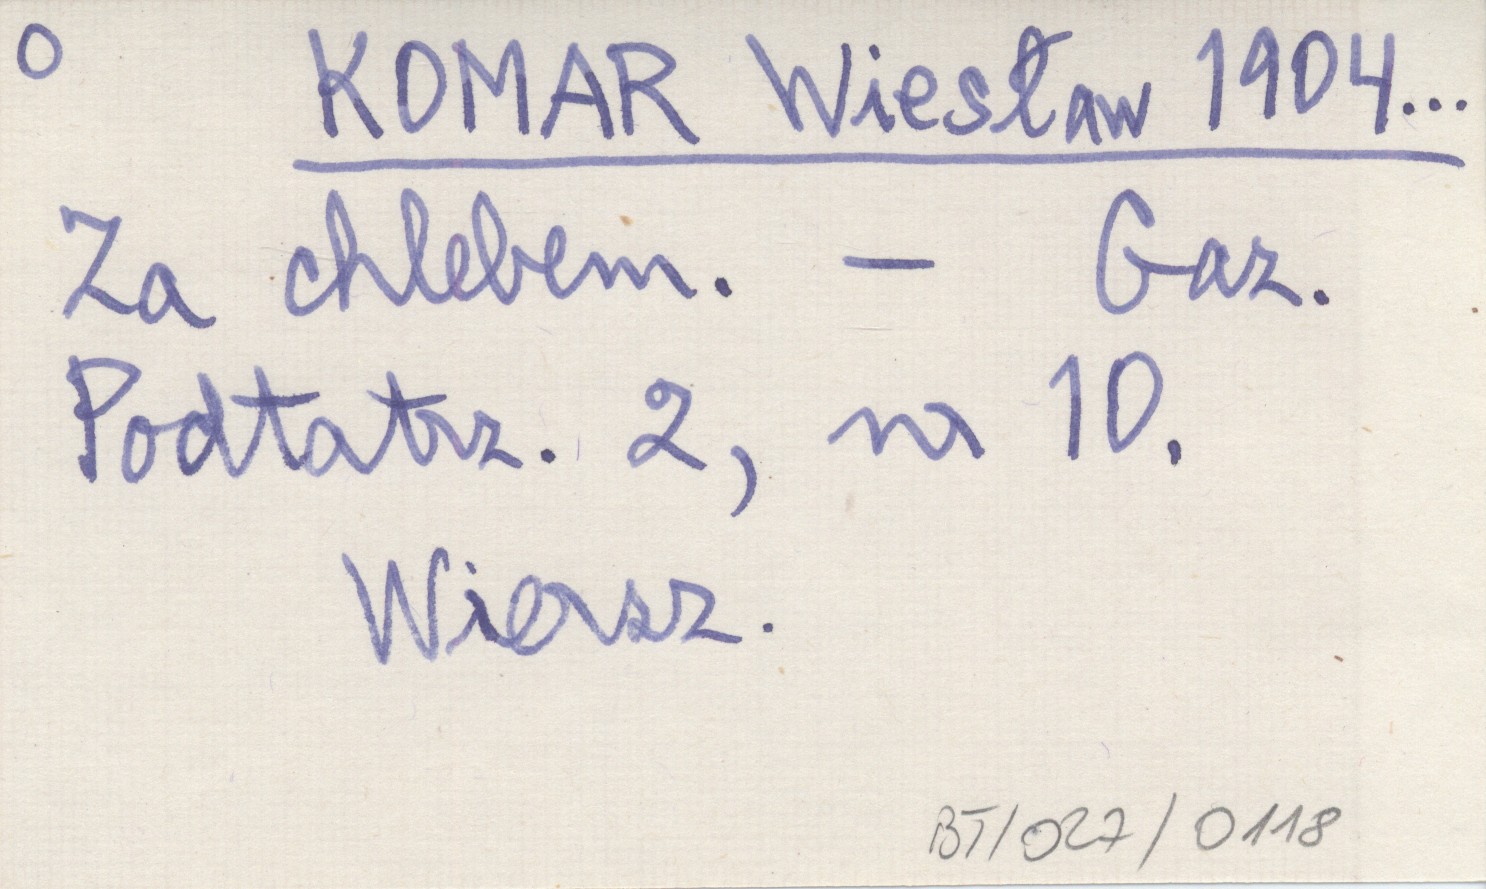 O KOMAR Wiesław 1904...
Za chlebem. — Gaz.
Podtatrz. 2, nr 10.
Wiersz.
BT/027/0118